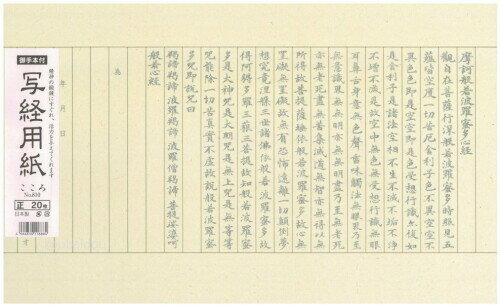 摩訶般若波羅蜜多心経
觀自在菩薩行深般若波羅蜜多時照見五
蘊皆空度一切苦厄舎利子色不異空空不
異色色即是空空即是色受想行識亦復如
是舎利子是諸法空相不生不滅不垢不浄
不増不減是故空中無色無受想行識無眼
耳鼻舌身意無色聲香味觸法無眼界乃至
無意識界無無明亦無無明盡乃至無老死
亦無老死盡無苦集滅道無智亦無得以無
所得故菩提薩埵依般若波羅蜜多故心無
罣礙無罣礙故無有恐怖遠離一切顛倒夢
想究竟涅槃三世諸佛依般若波羅蜜多故
得阿耨多羅三藐三菩提故知般若波羅蜜
多是大神呪是大明呪是無上呪是無等等
呪能除一切苦真實不虚故説般若波羅蜜
多呪即説呪曰
羯諦羯諦 波羅羯諦 波羅僧羯諦 菩提娑婆訶
般若心経
為
年 月 日
御手本付
精神の鍛錬にすぐれ、活力を与えてくれます
写経用紙
こころ
No.810
正 20枚
日本製